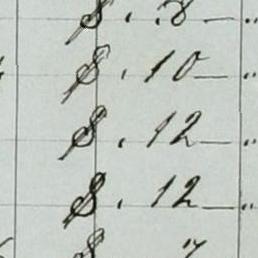 $ . . 8 — ..
$ . 10 — ..
$ . 12 — ..
$ . 12 — ..
$ 7